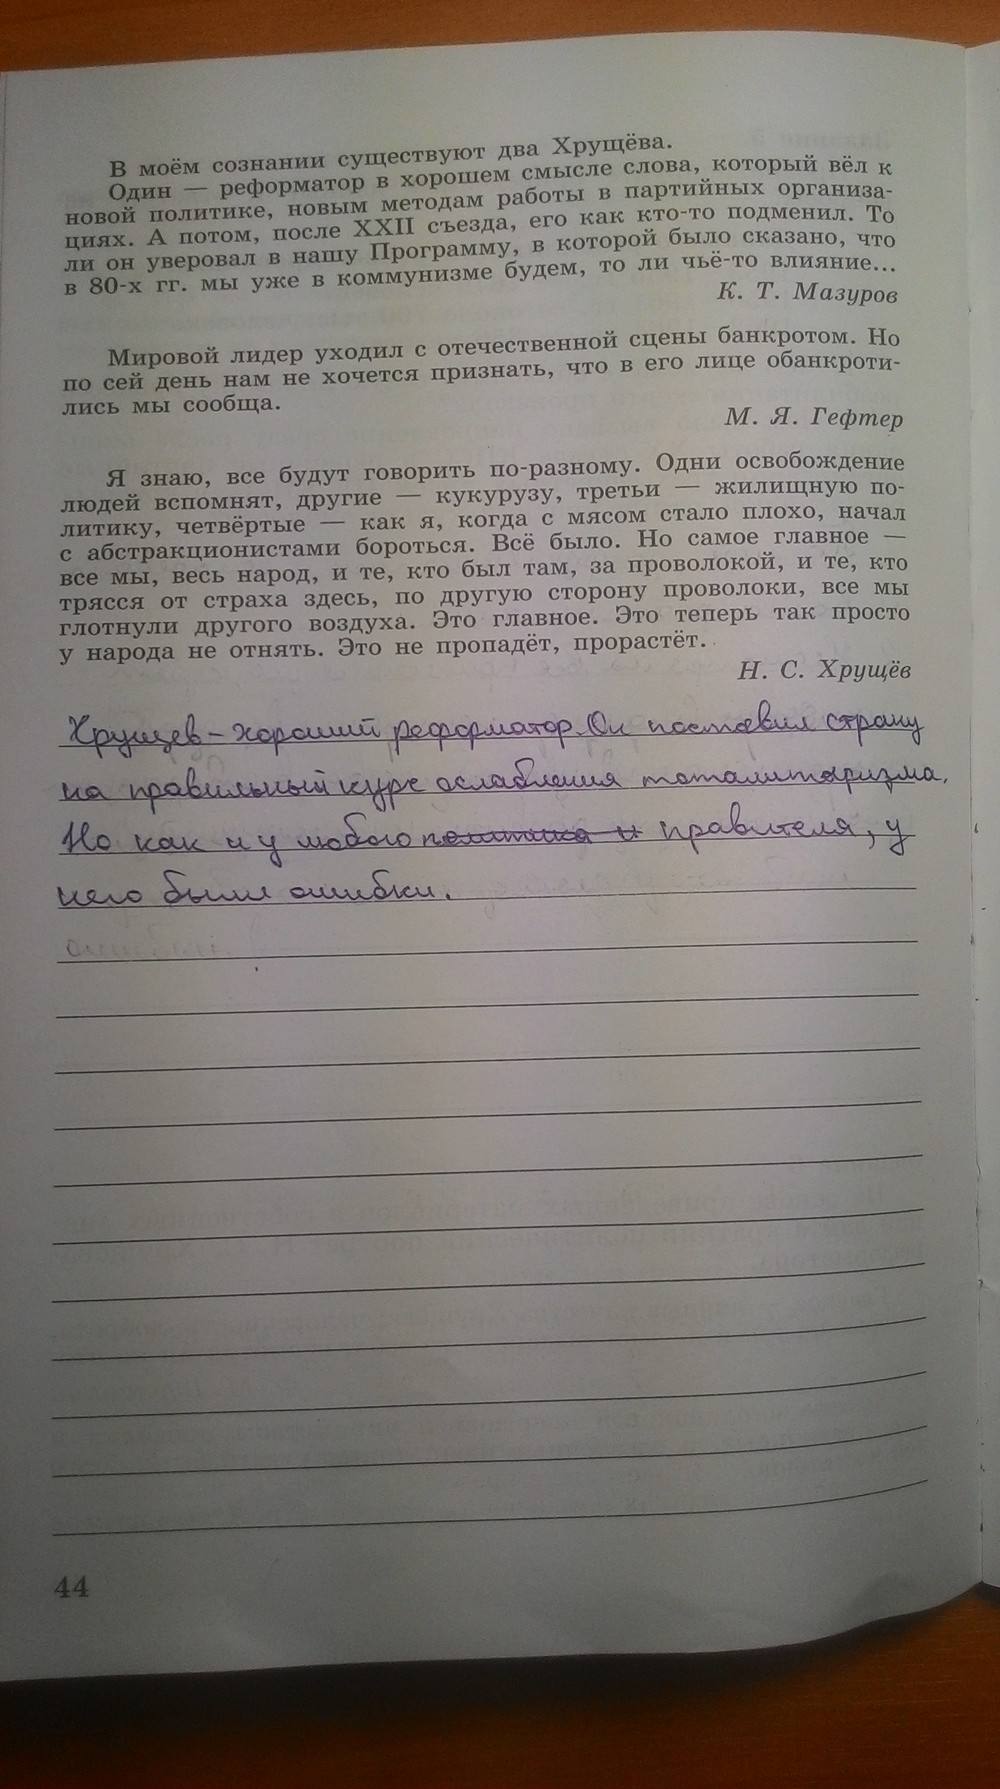 В моём сознании существуют два Хрущёва.
Один — реформатор в хорошем смысле слова, который вёл к
новой политике, новым методам работы в партийных организа-
циях. А потом, после XXII съезда, его как кто-то подменил. То
ли он уверовал в нашу Программу, в которой было сказано, что
в 80-х гг. мы уже в коммунизме будем, то ли чьё-то влияние...
К. Т. Мазуров
Мировой лидер уходил с отечественной сцены банкротом. Но
по сей день нам не хочется признать, что в его лице обанкроти-
лись мы сообща.
М. Я. Гефтер
Я знаю, все будут говорить по-разному. Одни освобождение
людей вспомнят, другие — кукурузу, третьи — жилищную по-
литику, четвёртые — как я, когда с мясом стало плохо, начал
с абстракционистами бороться. Всё было. Но самое главное —
все мы, весь народ, и те, кто был там, за проволокой, и те, кто
трясся от страха здесь, по другую сторону проволоки, все мы
глотнули другого воздуха. Это главное. Это теперь так просто
у народа не отнять. Это не пропадёт, прорастёт.
Н. С. Хрущёв
Хрущев – хороший реформатор. Он поставил страну
на правильный курс ослабления тоталитаризма.
Но как и у любого политика и правителя, у
него были ошибки.
44